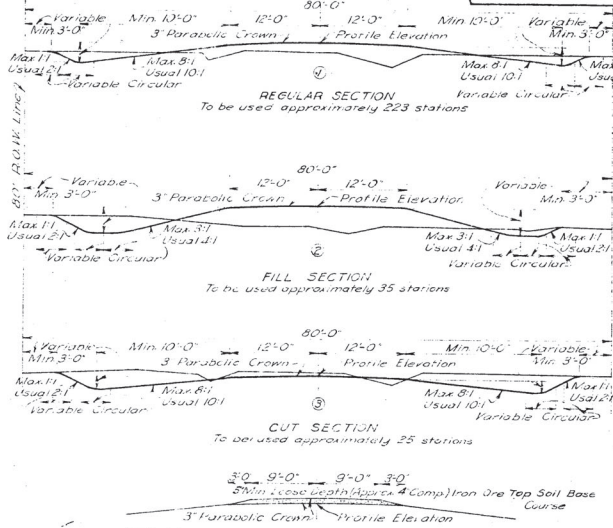 80'-0"
Variable Min. 10'-0" 12'-0" 12'-0" Min. 10'-0" Variable
Min. 3'-0" 3" Parabolic Crown Profile Elevation Min. 3'-0"
Max. 1:1 Max. 8:1 Max. 8:1 Max
Usual 2:1 Usual 10:1 Usual 10:1
Variable Circular 1 Variable Circular
REGULAR SECTION
To be used approximately 223 stations
80' R.O.W. Line
80'-0"
Variable 12'-0" 12'-0" Variable
Min. 3'-0" 3" Parabolic Crown Profile Elevation Min. 3'-0"
Max. 1:1 Max. 3:1 Max. 3:1 Max. 1:1
Usual 2:1 Usual 4:1 Usual 4:1 Usual 2:1
Variable Circular 2 Variable Circular
FILL SECTION
To be used approximately 35 stations
80'-0"
Variable Min. 10'-0" 12'-0" 12'-0" Min. 10'-0" Variable
Min. 3'-0" 3" Parabolic Crown Profile Elevation Min. 3'-0"
Max. 1:1 Max. 8:1 Max. 8:1 Max. 1:1
Usual 2:1 Usual 10:1 Usual 10:1 Usual 2:1
Variable Circular 3 Variable Circular
CUT SECTION
To be used approximately 25 stations
3'-0 9'-0" 9'-0" 3'-0
5" Min. Loose Depth (Approx. 4" Comp.) Iron Ore Top Soil Base
Course
3" Parabolic Crown Profile Elevation